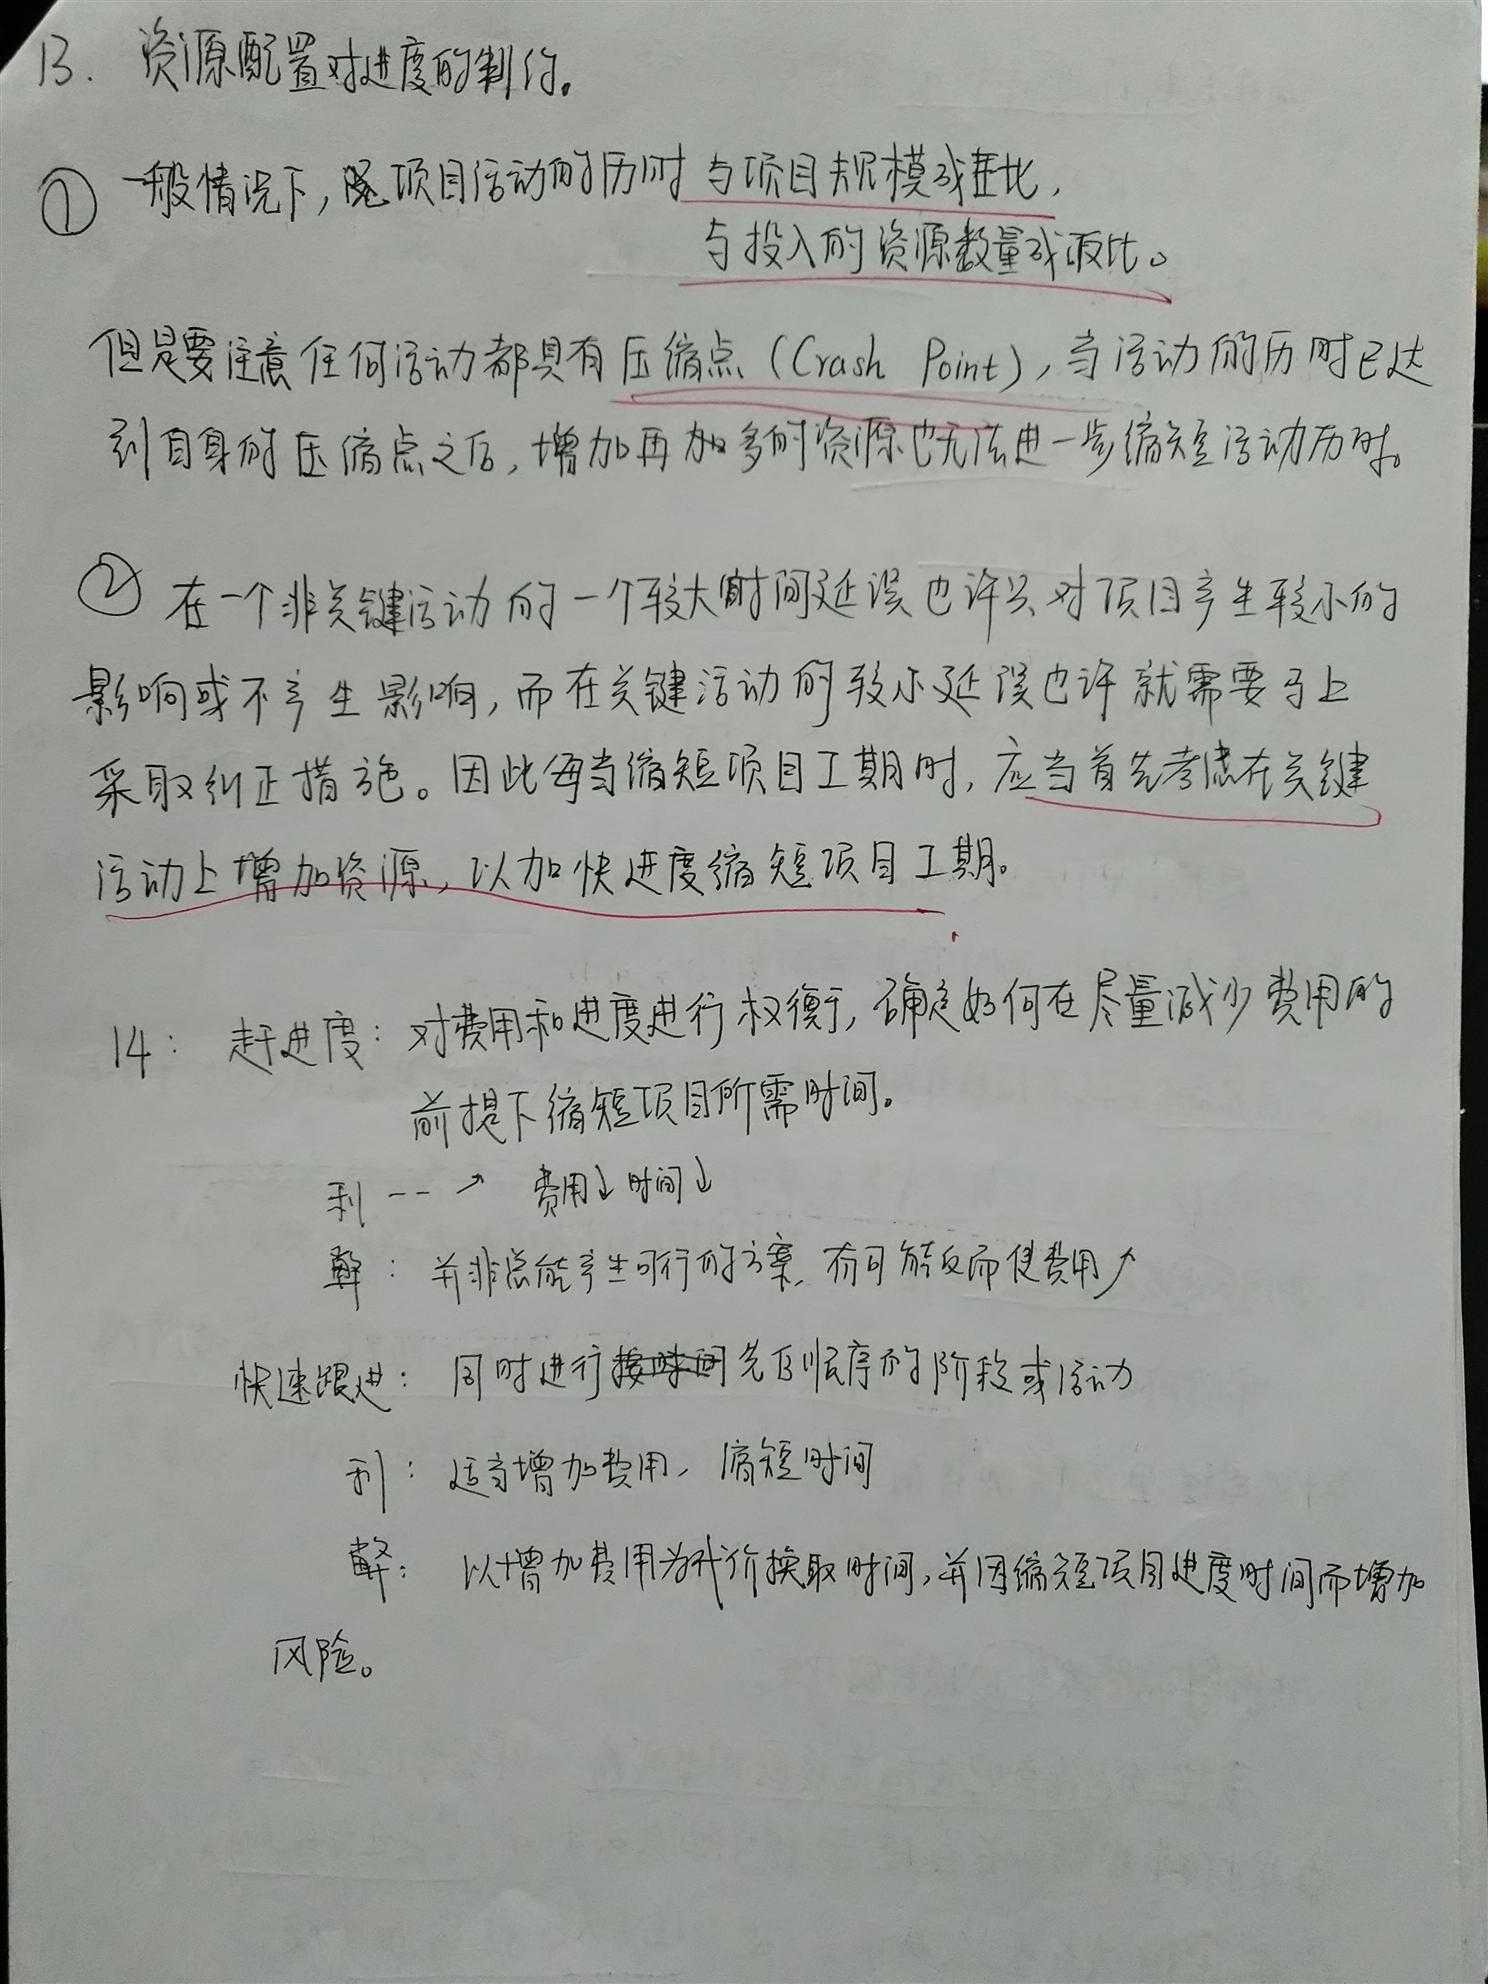 13. 资源配置对进度的制约。
① 一般情况下，项目活动的历时与项目规模成正比，
与投入的资源数量成反比。
但是要注意任何活动都具有压缩点（Crash Point），当活动的历时已达
到自身的压缩点之后，增加再加多的资源也无法进一步缩短活动历时。
② 在一个非关键活动的一个较大的时间延误也许只对项目产生较小的
影响或不产生影响，而在关键活动的较小延误也许就需要马上
采取纠正措施。因此每当缩短项目工期时，应当首先考虑在关键
活动上增加资源，以加快进度缩短项目工期。
14：赶进度：对费用和进度进行权衡，确定如何在尽量减少费用的
前提下缩短项目所需时间。
利 --→ 费用↓时间↓
弊：并非总能产生可行的方案，有可能反而使费用↗
快速跟进：同时进行先后顺序的阶段或活动
利：适当增加费用，缩短时间
弊：以增加费用为代价换取时间，并因缩短项目进度时间而增加
风险。